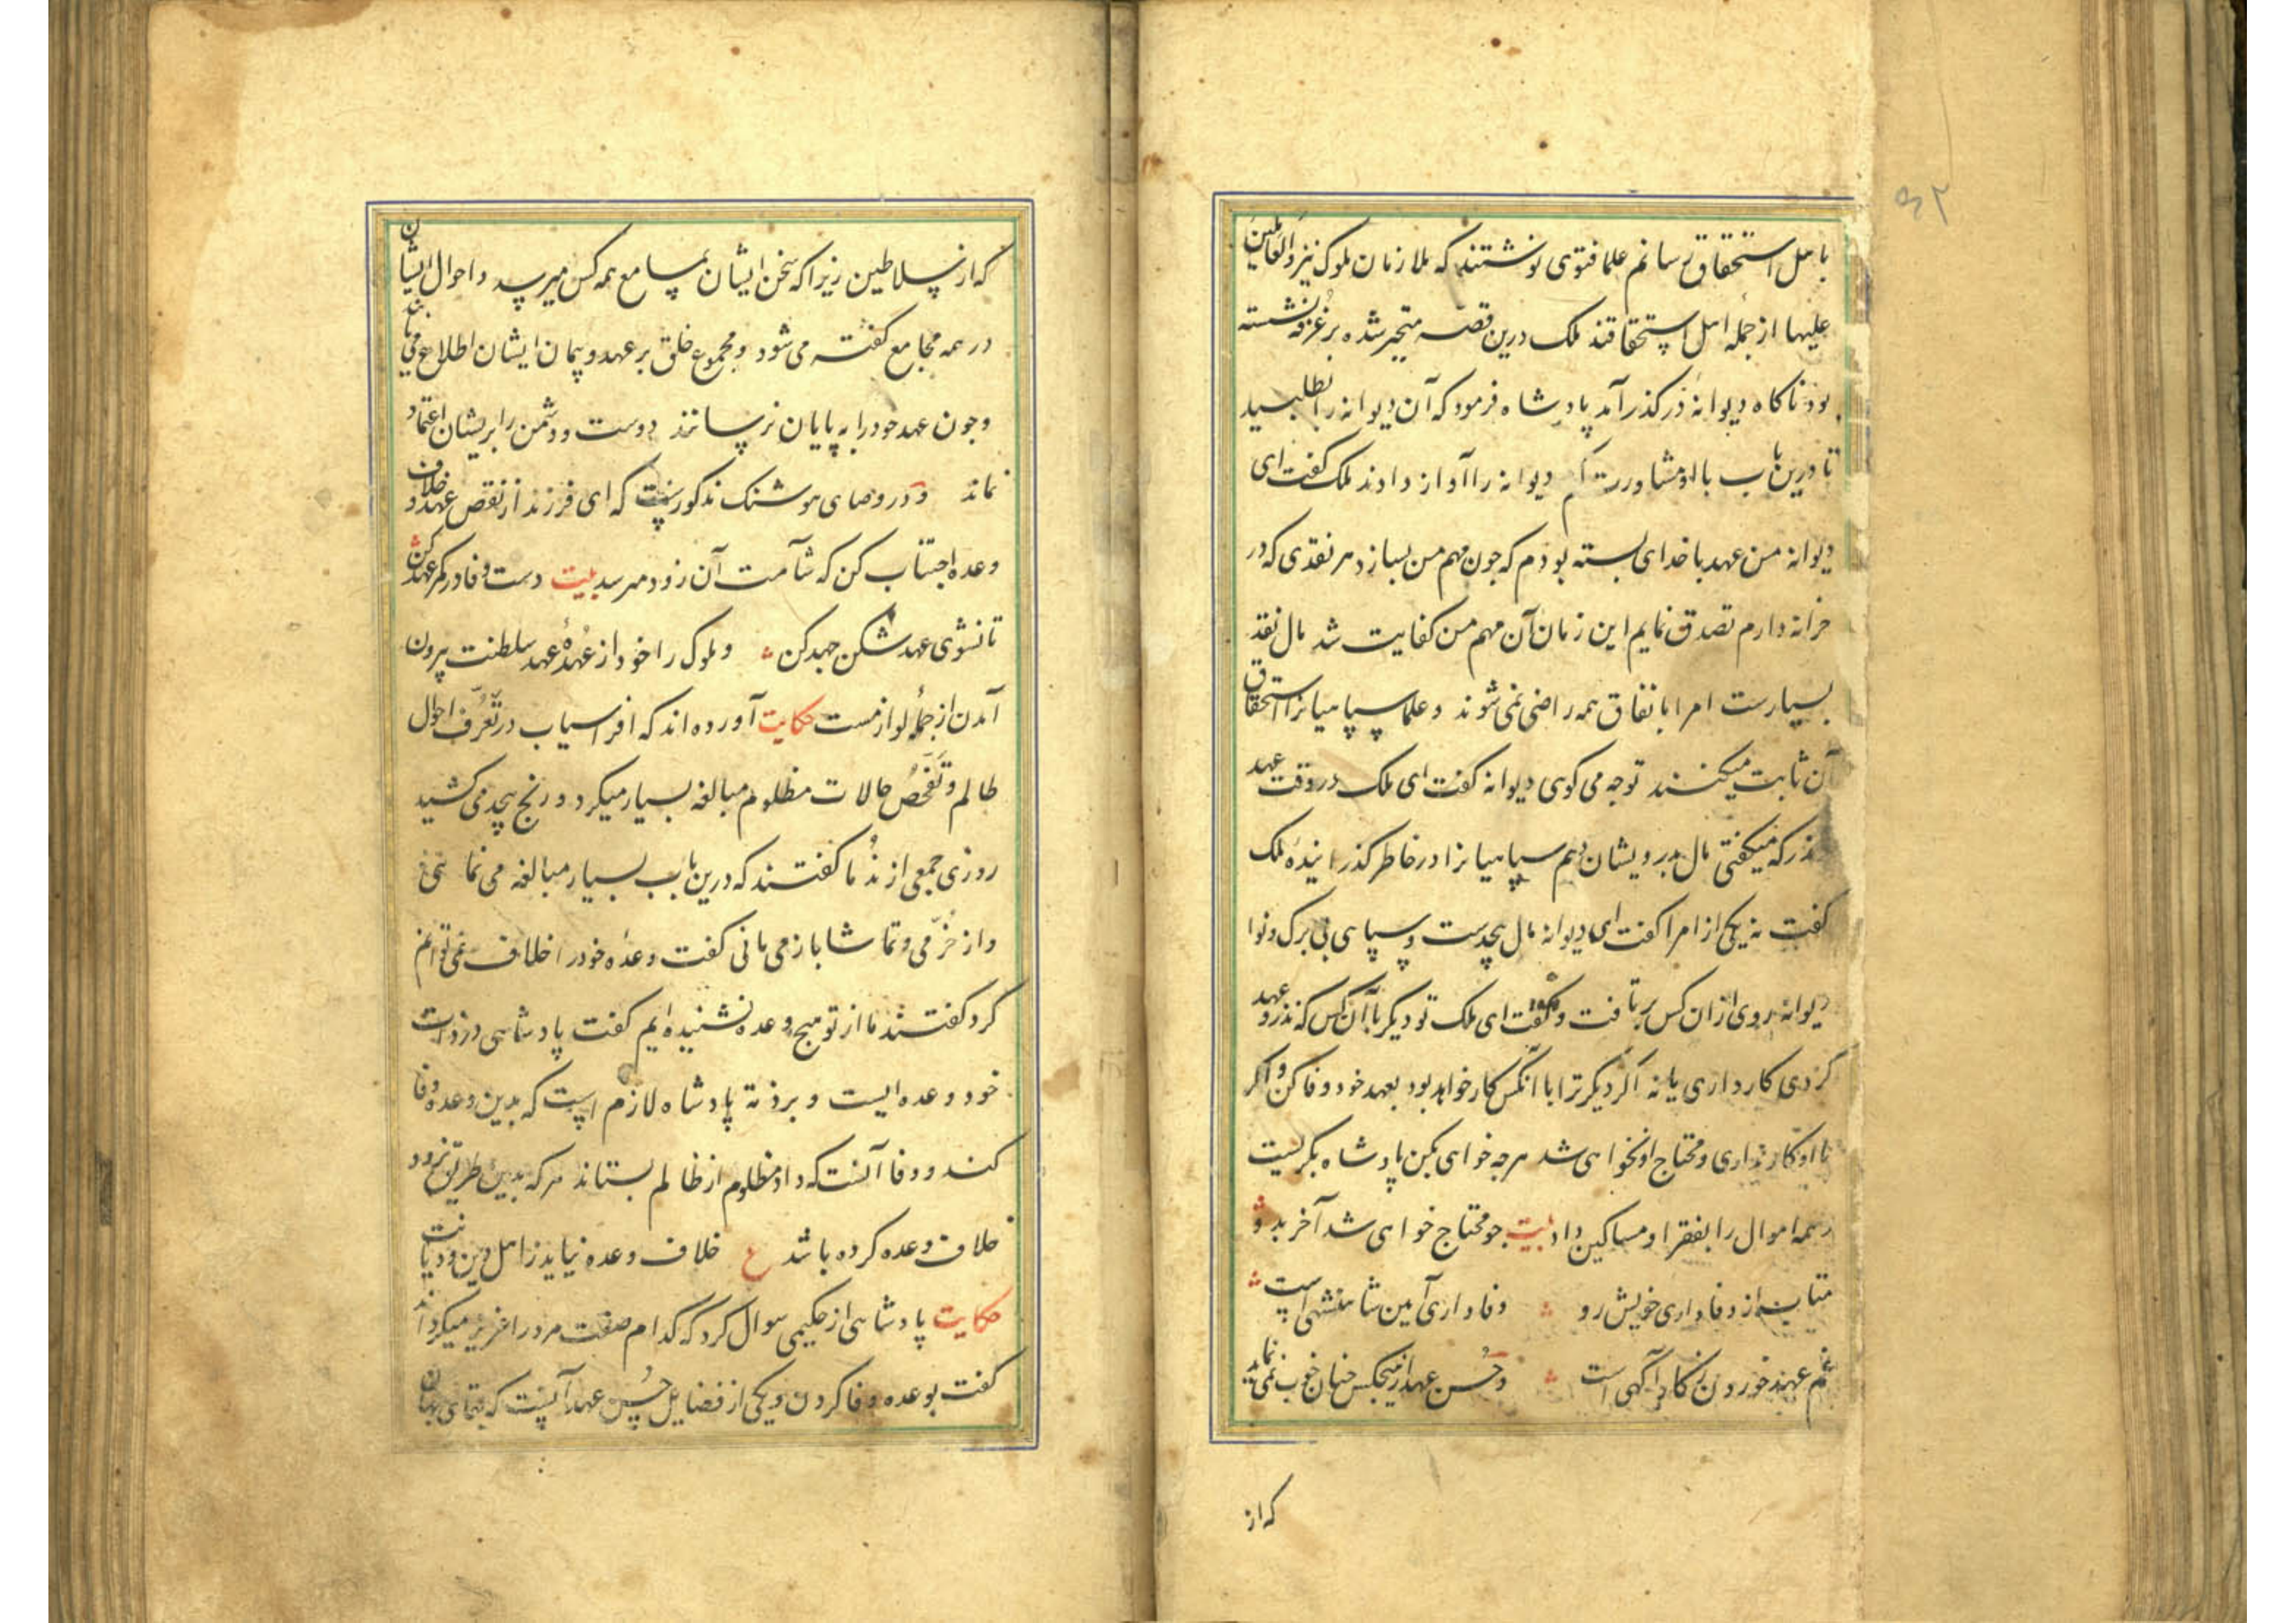 باهل استحقاق رسانم علما فتوی نوشتند که ملازمان ملوک نیز والعاملین
علیها از جمله اهل استحقاقند ملک درین قصه متحیر شده بر غرفه نشسته
بود ناکاه دیوانهٔ در کذر آمد پادشاه فرمود که آن دیوانه را بطلبید
تا درین باب با او مشاورت کنم دیوانه را آواز دادند ملک کفت ای
دیوانه من عهد با خدای بسته بودم که چون مهم من بسازد هر نقدی که در
خزانه دارم تصدق نمایم این زمان آن مهم من کفایت شد مال نقد
بسیارست امرا باتفاق همه راضی نمی شوند و علما سپاهیانرا استحقاق
آن ثابت میکنند تو چه می کوی دیوانه کفت ای ملک در وقت عهد
نذر که میکفتی مال بدرویشان دهم سپاهیانرا در خاطر کذرانیدهٔ ملک
کفت نه یکی از امرا کفت ای دیوانه مال بیحدست و سپاهی بی برک و نوا
دیوانه روی ازان کس برتافت و کفت ای ملک تو دیکر با آن کس که نذر و عهد
کردی کار داری یا نه اکر دیکر ترا با آنکس کار خواهد بود بعهد خود وفا کن و اکر
با او کار نداری و محتاج او نخواهی شد هرچه خواهی بکن پادشاه بکریست
و همه اموال را بفقرا و مساکین داد بیت چو محتاج خواهی شد آخر بدو
متاب از وفاداری خویش رو وفاداری آیین شاهنشهی است
غم عهد خوردن ز کار آکهی است و حسن عهد از هیچکس چنان خوب نمی نماید
که از
که از سلاطین زیرا که سخن ایشان بمسامع همه کس میرسد و احوال ایشان
در همه مجامع کفته می شود و مجموع خلق بر عهد و پیمان ایشان اطلاع می یابند
و چون عهد خود را به پایان نرسانند دوست و دشمن را بریشان اعتماد
نماند و در وصای هوشنک مذکور است که ای فرزند از نقض عهد و خلاف
وعده اجتناب کن که شآمت آن زود میرسد بیت دست وفا در کمر عهد کن
تا نشوی عهد شکن جهد کن و ملوک را خود از عهدهٔ عهد سلطنت بیرون
آمدن از جملهٔ لوازمست حکایت آورده اند که افراسیاب در تعرف احوال
ظالم و تفحص حالات مظلوم مبالغه بسیار میکرد و رنج بیحد می کشید
روزی جمعی از ندما کفتند که درین باب بسیار مبالغه می نمائی
و از خرمی و تماشا باز می مانی کفت وعدهٔ خود را خلاف نمی توانم
کرد کفتند ما از تو هیچ وعده نشنیده ایم کفت پادشاهی در ذات
خود وعده ایست و بر ذمهٔ پادشاه لازم است که بدین وعده وفا
کند و وفا آنست که داد مظلوم از ظالم بستاند هر که بدین طریق نرود
خلاف وعده کرده باشد ع خلاف وعده نیاید ز اهل دین و دیانت
حکایت پادشاهی از حکیمی سوال کرد که کدام صفت مرد را عزیز میکرداند
کفت بوعده وفا کردن و یکی از فضایل حسن عهد آنست که بقای بنیان